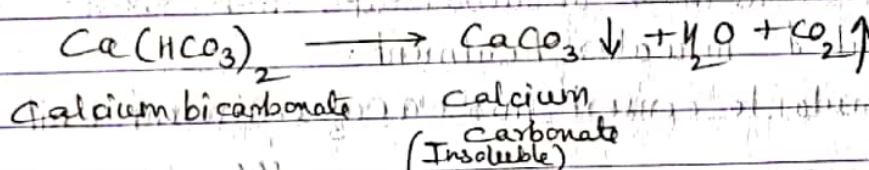 Ca(HCO₃)₂ ⟶ CaCO₃ ↓ + H₂O + CO₂ ↑
Calcium bicarbonate Calcium
Carbonate
(Insoluble)